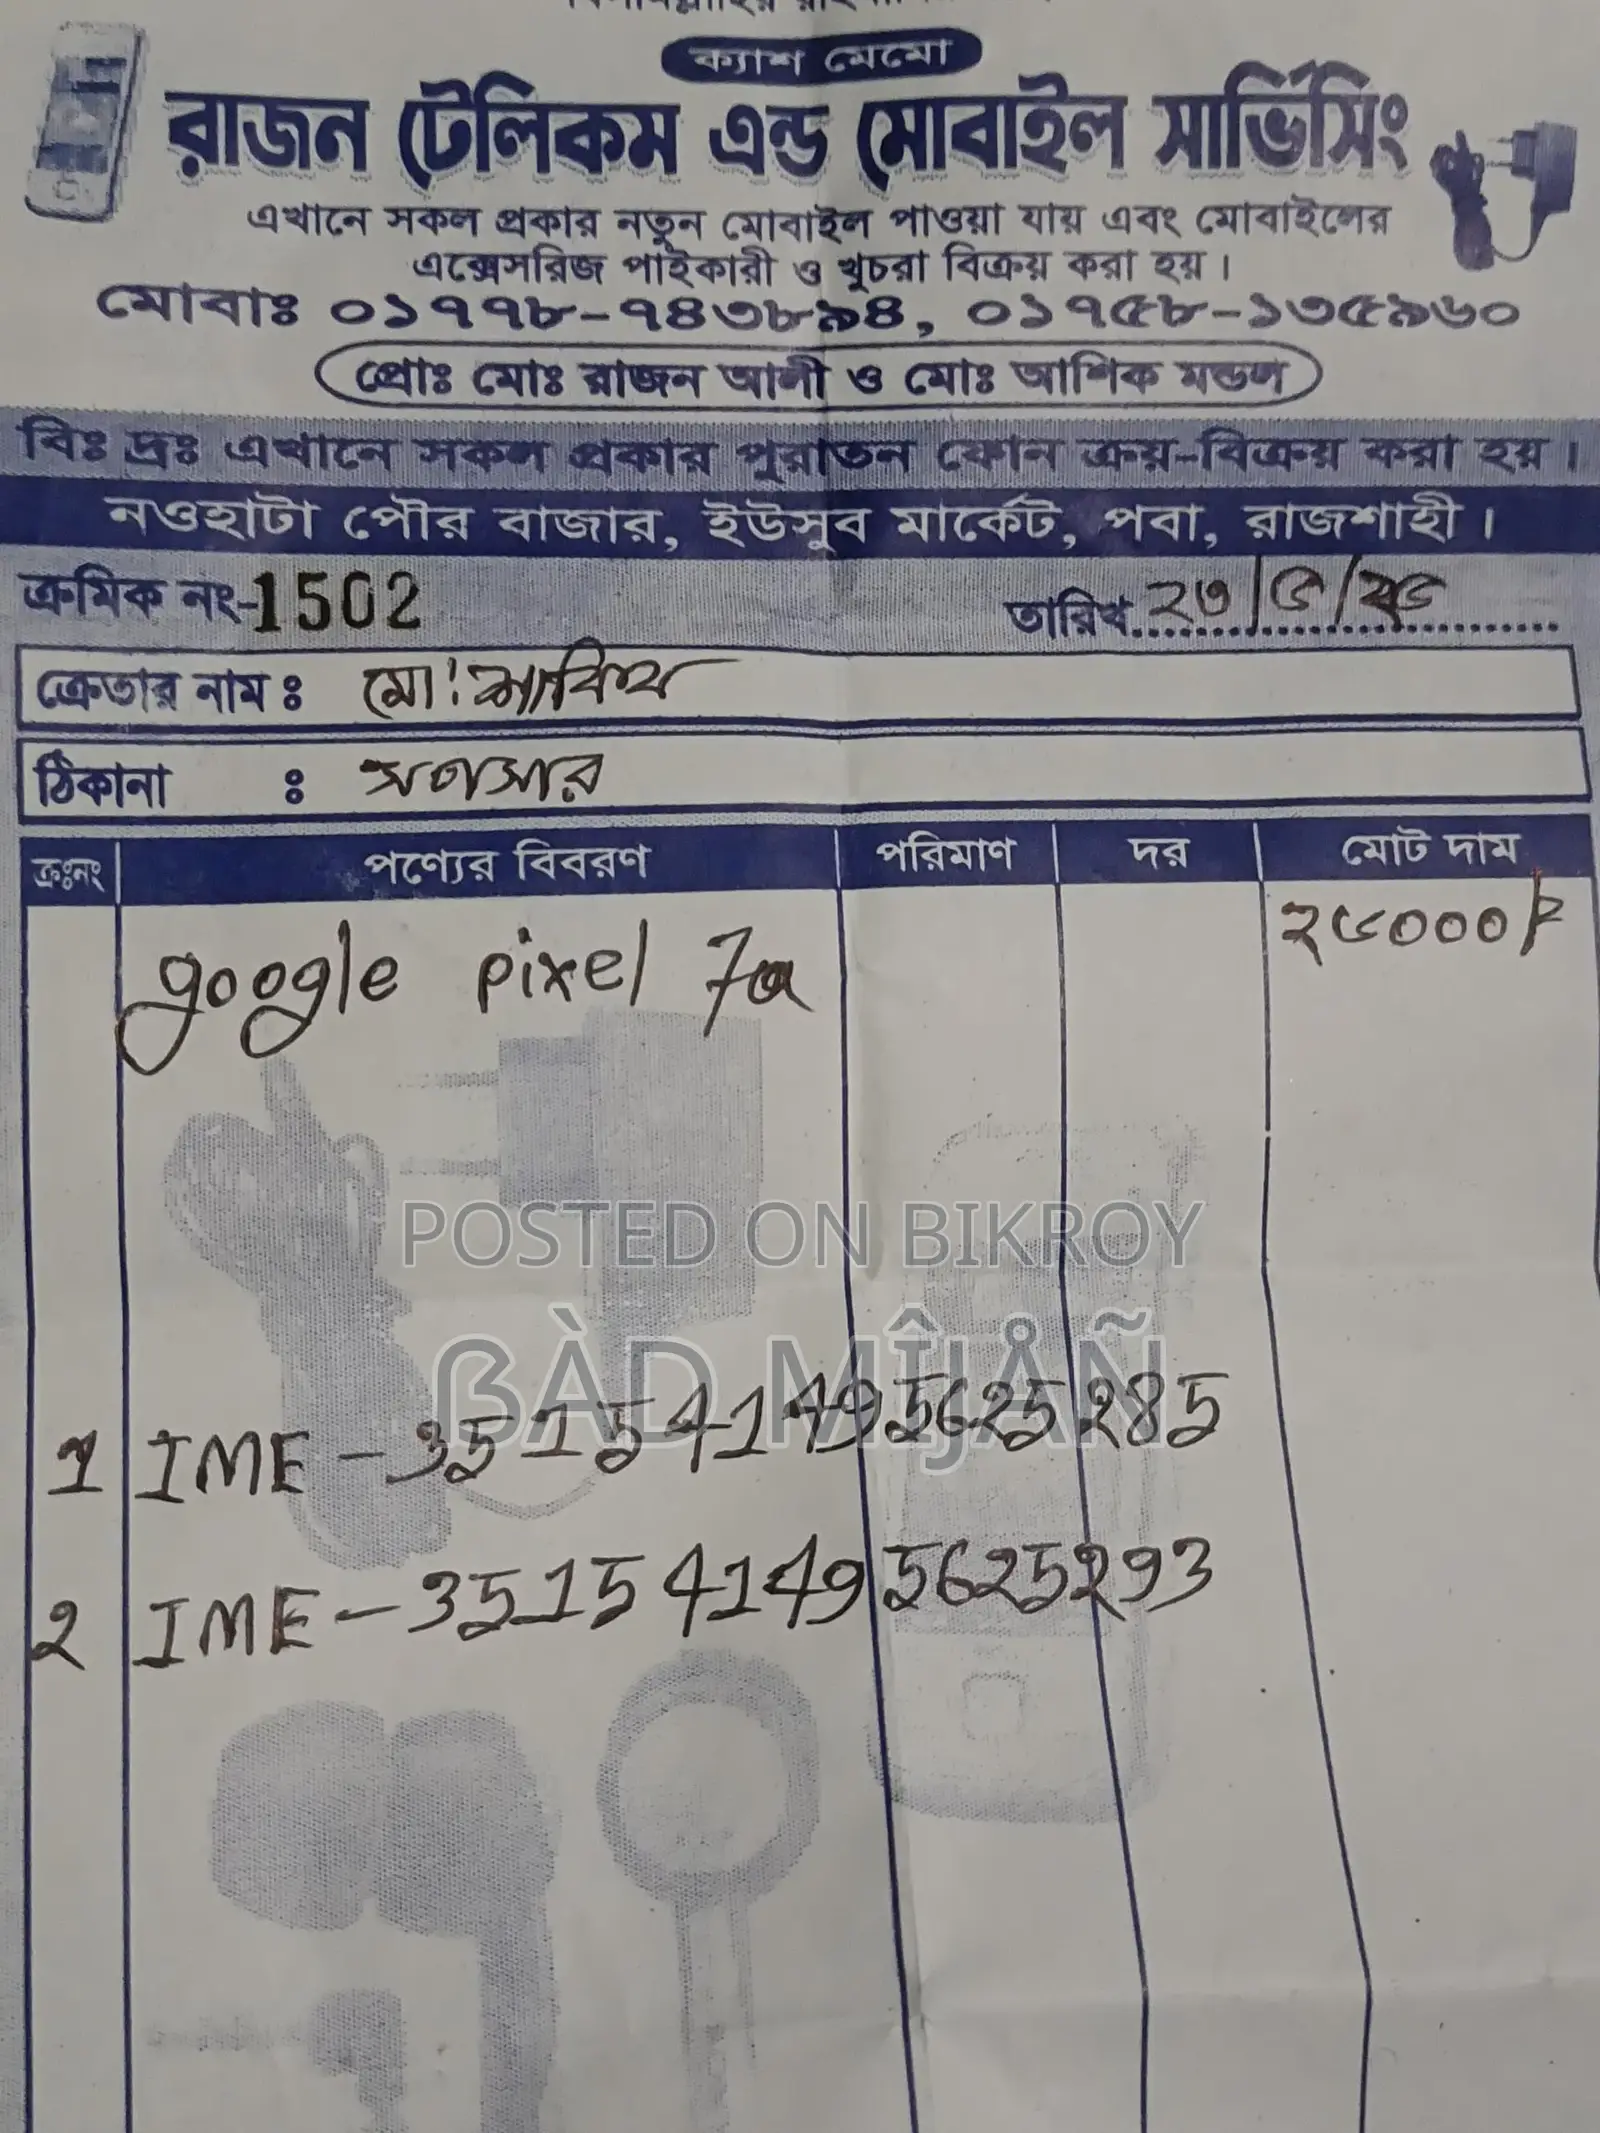 ক্যাশ মেমো
রাজন টেলিকম এন্ড মোবাইল সার্ভিসিং
এখানে সকল প্রকার নতুন মোবাইল পাওয়া যায় এবং মোবাইলের
এক্সেসরিজ পাইকারী ও খুচরা বিক্রয় করা হয়।
মোবাঃ ০১৭৭৮-৭৪৩৮৯৪, ০১৭৫৮-১৩৫৯৬০
প্রোঃ মোঃ রাজন আলী ও মোঃ আশিক মন্ডল
বিঃ দ্রঃ এখানে সকল প্রকার পুরাতন ফোন ক্রয়-বিক্রয় করা হয়।
নওহাটা পৌর বাজার, ইউসুব মার্কেট, পবা, রাজশাহী।
ক্রমিক নং-1502 তারিখ ২৩/৫/২৫
ক্রেতার নাম : মো:
ঠিকানা :
ক্রঃনং পণ্যের বিবরণ পরিমাণ দর মোট দাম
google pixel 7a ২৫০০০/=
POSTED ON BIKROY
ẞÀD MÎJÅÑ
1 IME - 351541495625285
2 IME - 351541495625293